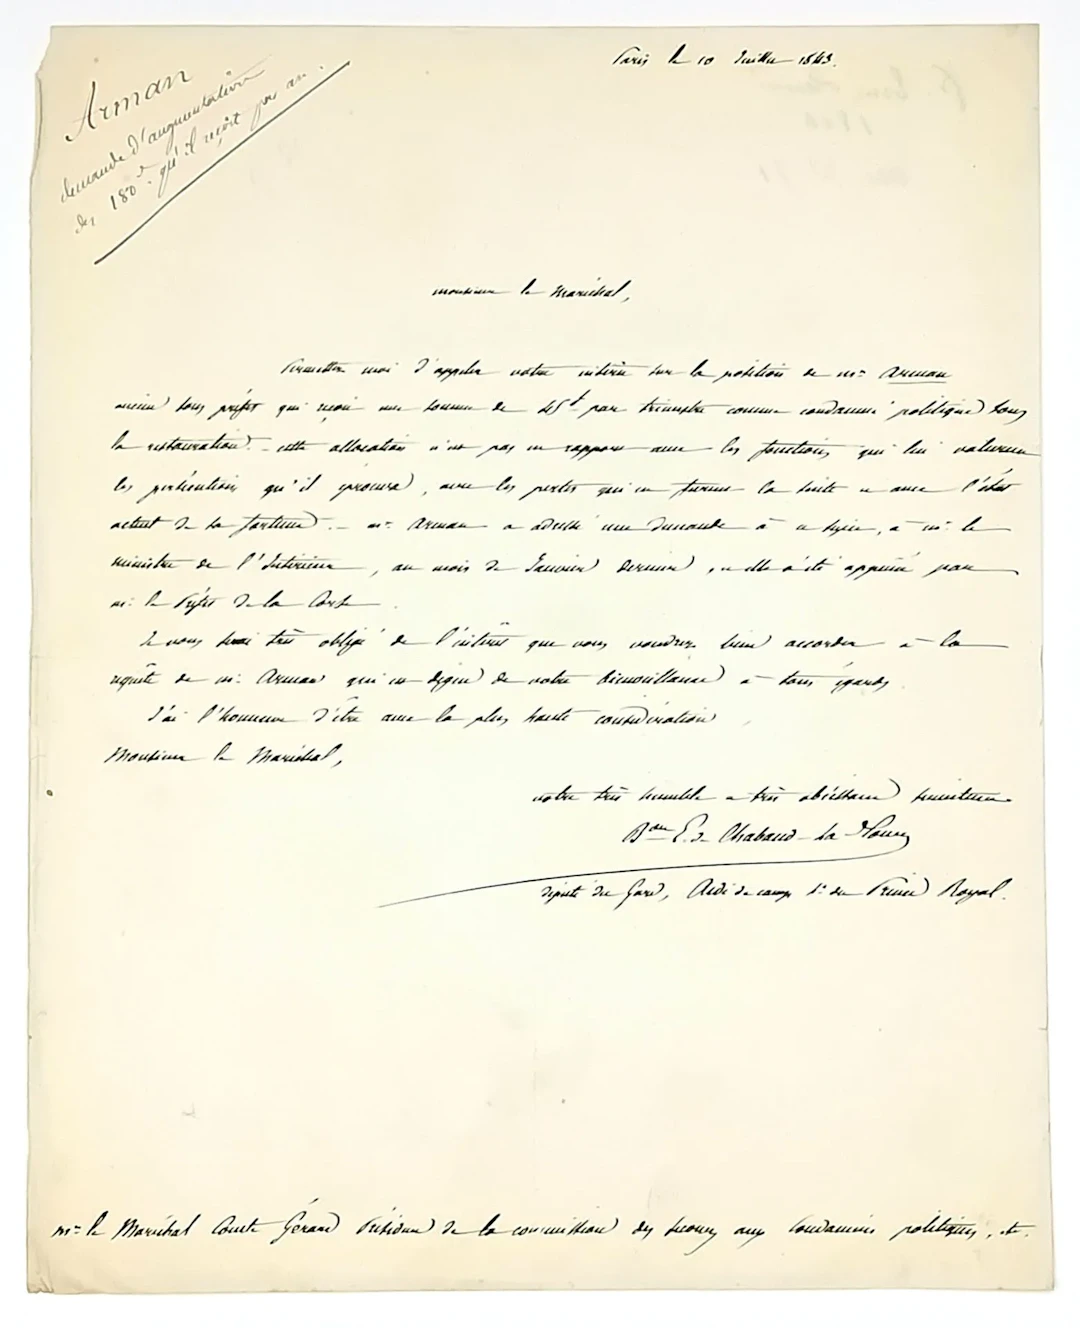 Paris le 10 Juillet 1843.
Arman
demande d'augmentation
des 180 f. qu'il reçoit par an.
monsieur le Maréchal,
Permettez moi d'appeler votre intérêt sur la position de mr. Arman
ancien sous préfet qui reçoit une somme de 45 f par trimestre comme condamné politique sous
la restauration. - cette allocation n'est pas en rapport avec les fonctions qui lui valurent
les persécutions qu'il éprouva, avec les pertes qui en furent la suite et avec l'état
actuel de sa fortune. - mr. Arman a adressé une demande à ce sujet, à mr. le
ministre de l'Intérieur, au mois de Janvier dernier, et elle a été appuyée par
mr. le Préfet de la Corse.
Je vous serai très obligé de l'intérêt que vous voudrez bien accorder à la
requête de mr. Arman qui est digne de votre bienveillance à tous égards.
J'ai l'honneur d'être avec la plus haute considération,
Monsieur le Maréchal,
votre très humble et très obéissant serviteur
Bon E. de Chabaud-la Tour
député du Gard, Aide de camp de feu Prince Royal.
mr. le Maréchal Comte Gérard Président de la commission des secours aux condamnés politiques, etc.